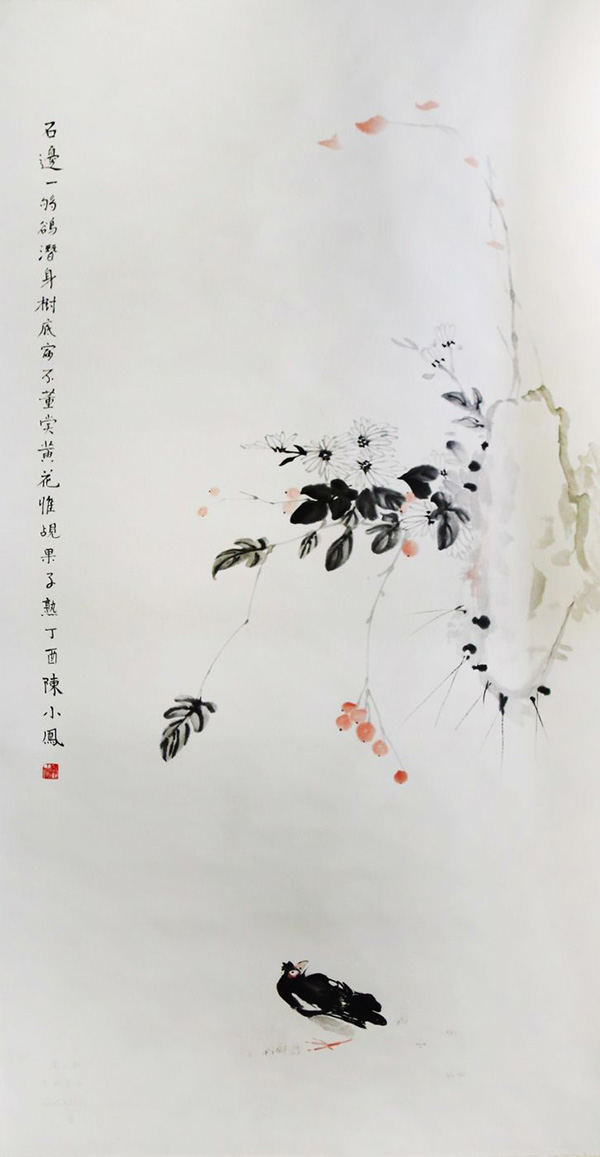 石邊一鵒潛身樹底不董赏黄花惟覘果子熟丁酉陳小鳳